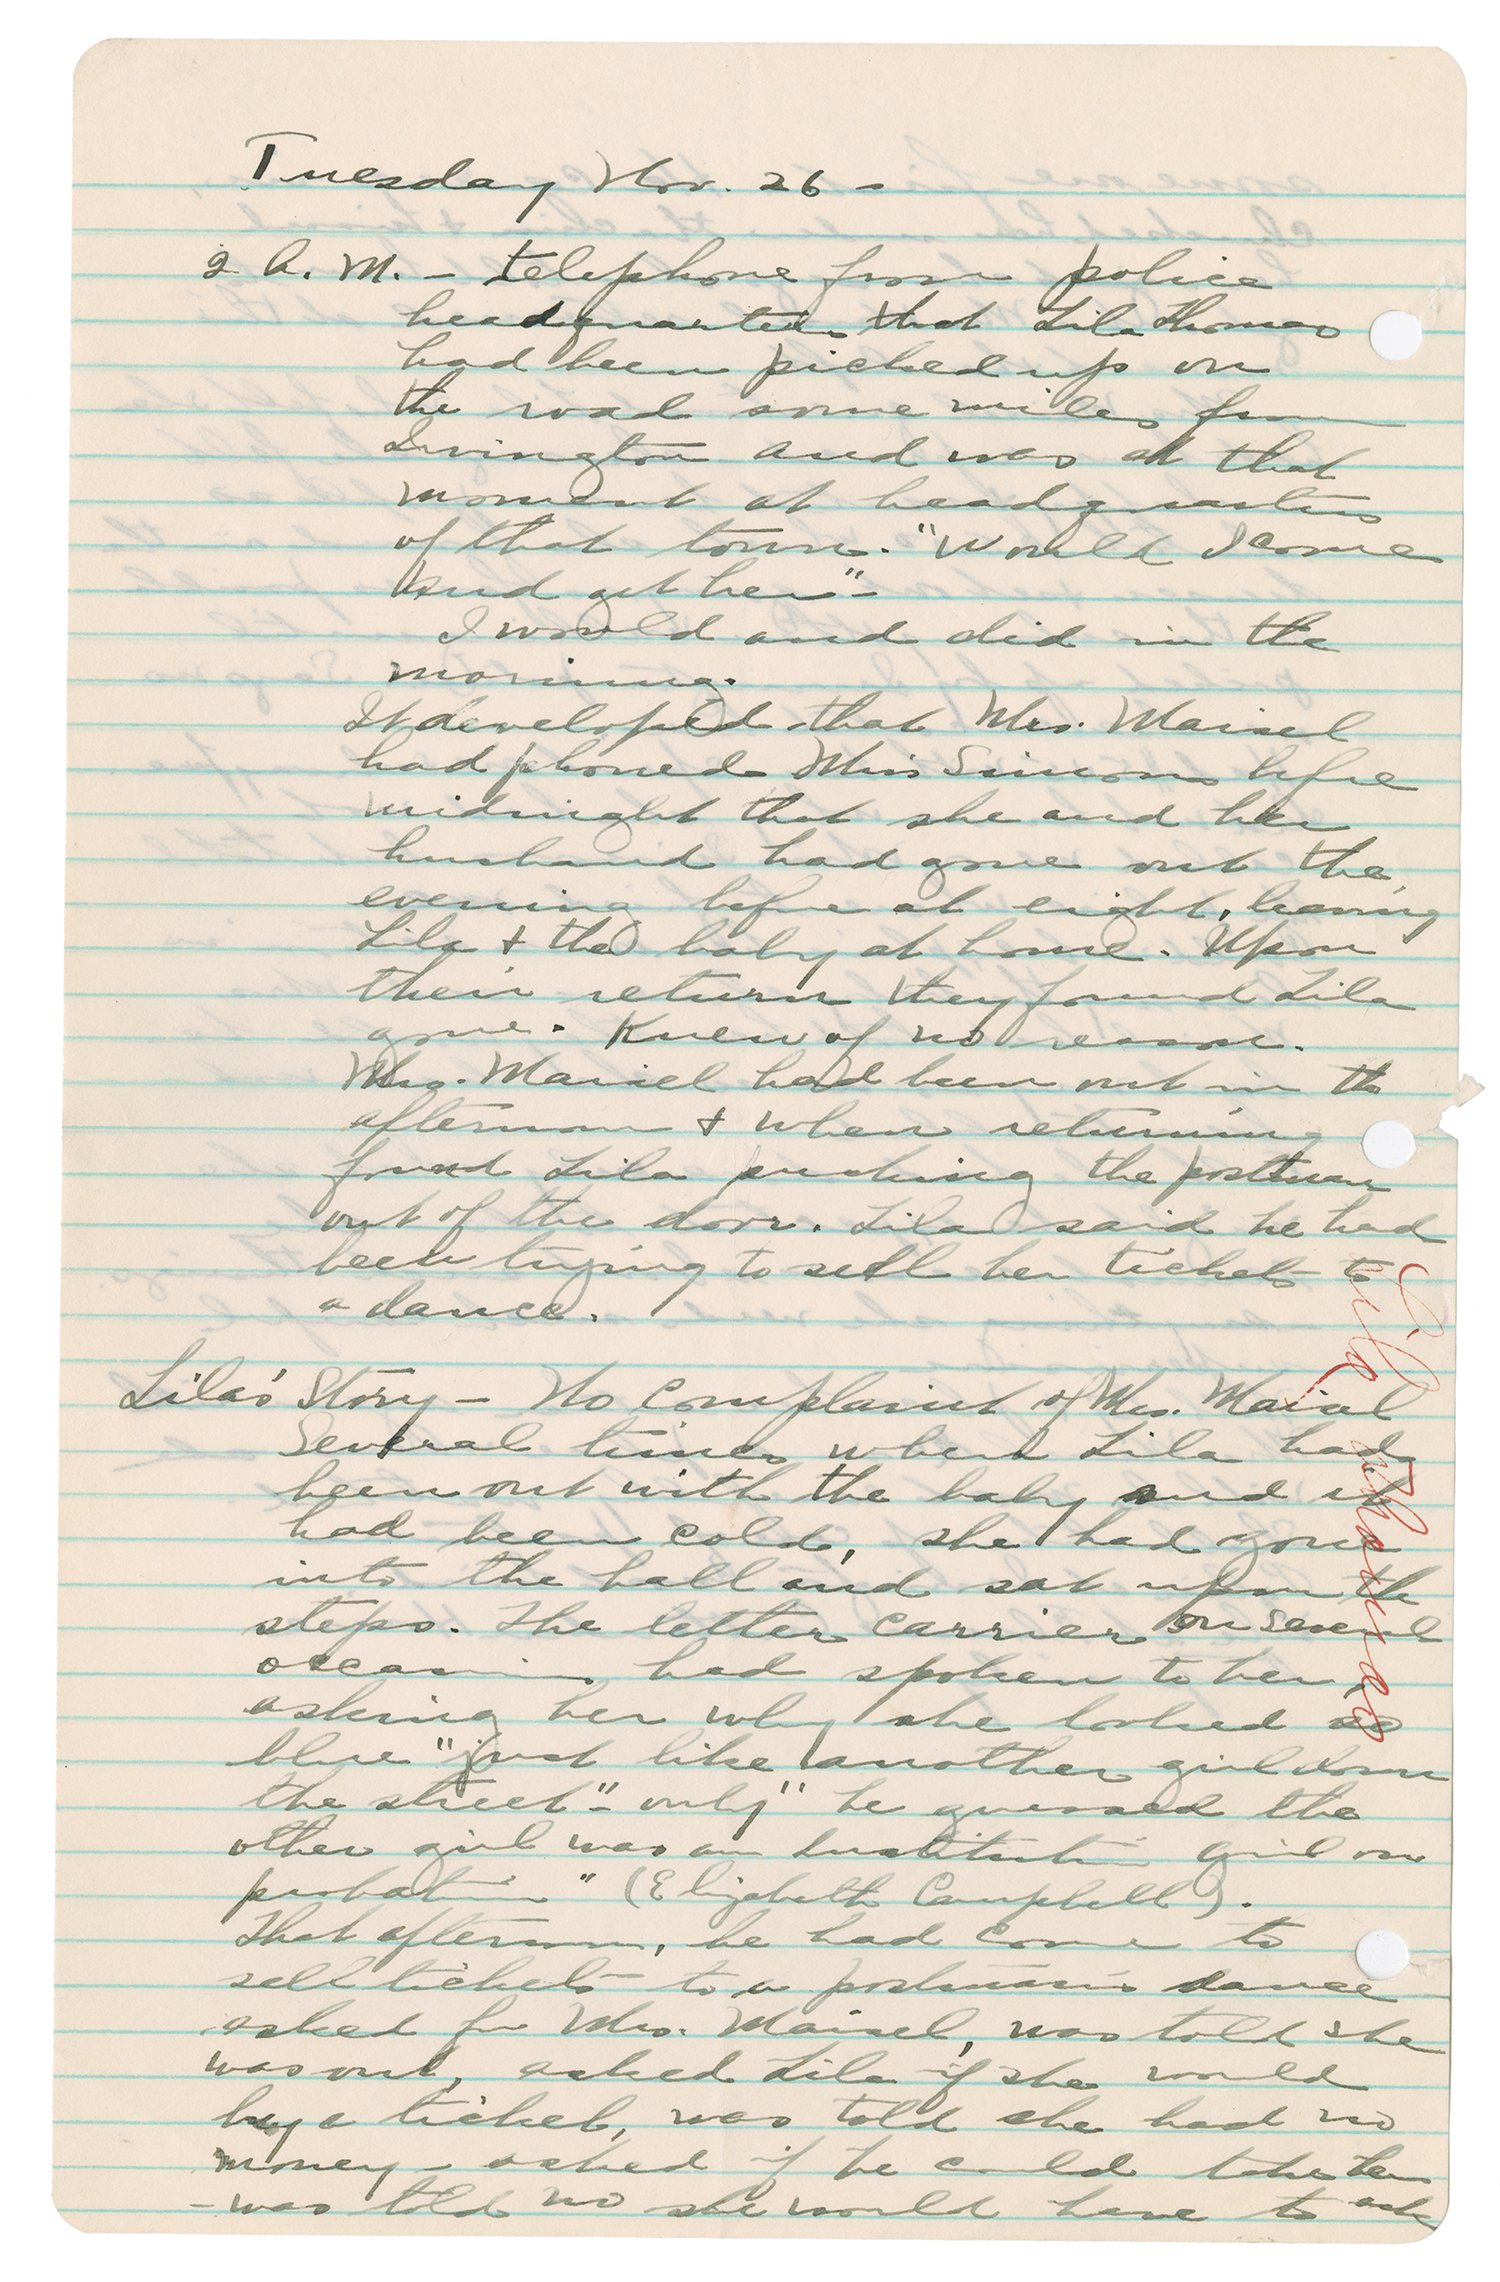 Tuesday Nov. 26 -
2 A. M. - telephone from police
headquarters that Lila Thomas
had been picked up on
the road some miles from
Irvington and was at that
moment at headquarters
of that town. "Would I come
and get her" -
I would and did in the
morning.
It developed that Mrs. Maisel
had phoned Miss Simons before
midnight that she and her
husband had gone out the
evening before at eight, leaving
Lila & the baby at home. Upon
their return they found Lila
gone. Knew of no reason.
Mrs. Maisel had been out in the
afternoon & when returning
found Lila pushing the postman
out of the door. Lila said he had
been trying to sell her tickets to
a dance.
Lila's Story - No complaint of Mrs. Maisel
Several times when Lila had
been out with the baby and it
had been cold, she had gone
into the hall and sat upon the
steps. The letter carrier on several
occasions had spoken to her,
asking her why she looked so
blue "just like another girl down
the street" - only "he guessed the
other girl was an Institution girl on
probation" (Elizabeth Campbell).
That afternoon, he had come to
sell tickets to a postman's dance
asked for Mrs. Maisel, was told she
was out, asked Lila if she would
buy a ticket, was told she had no
money - asked if he could take her
- was told no she would have to ask
Lila Thomas